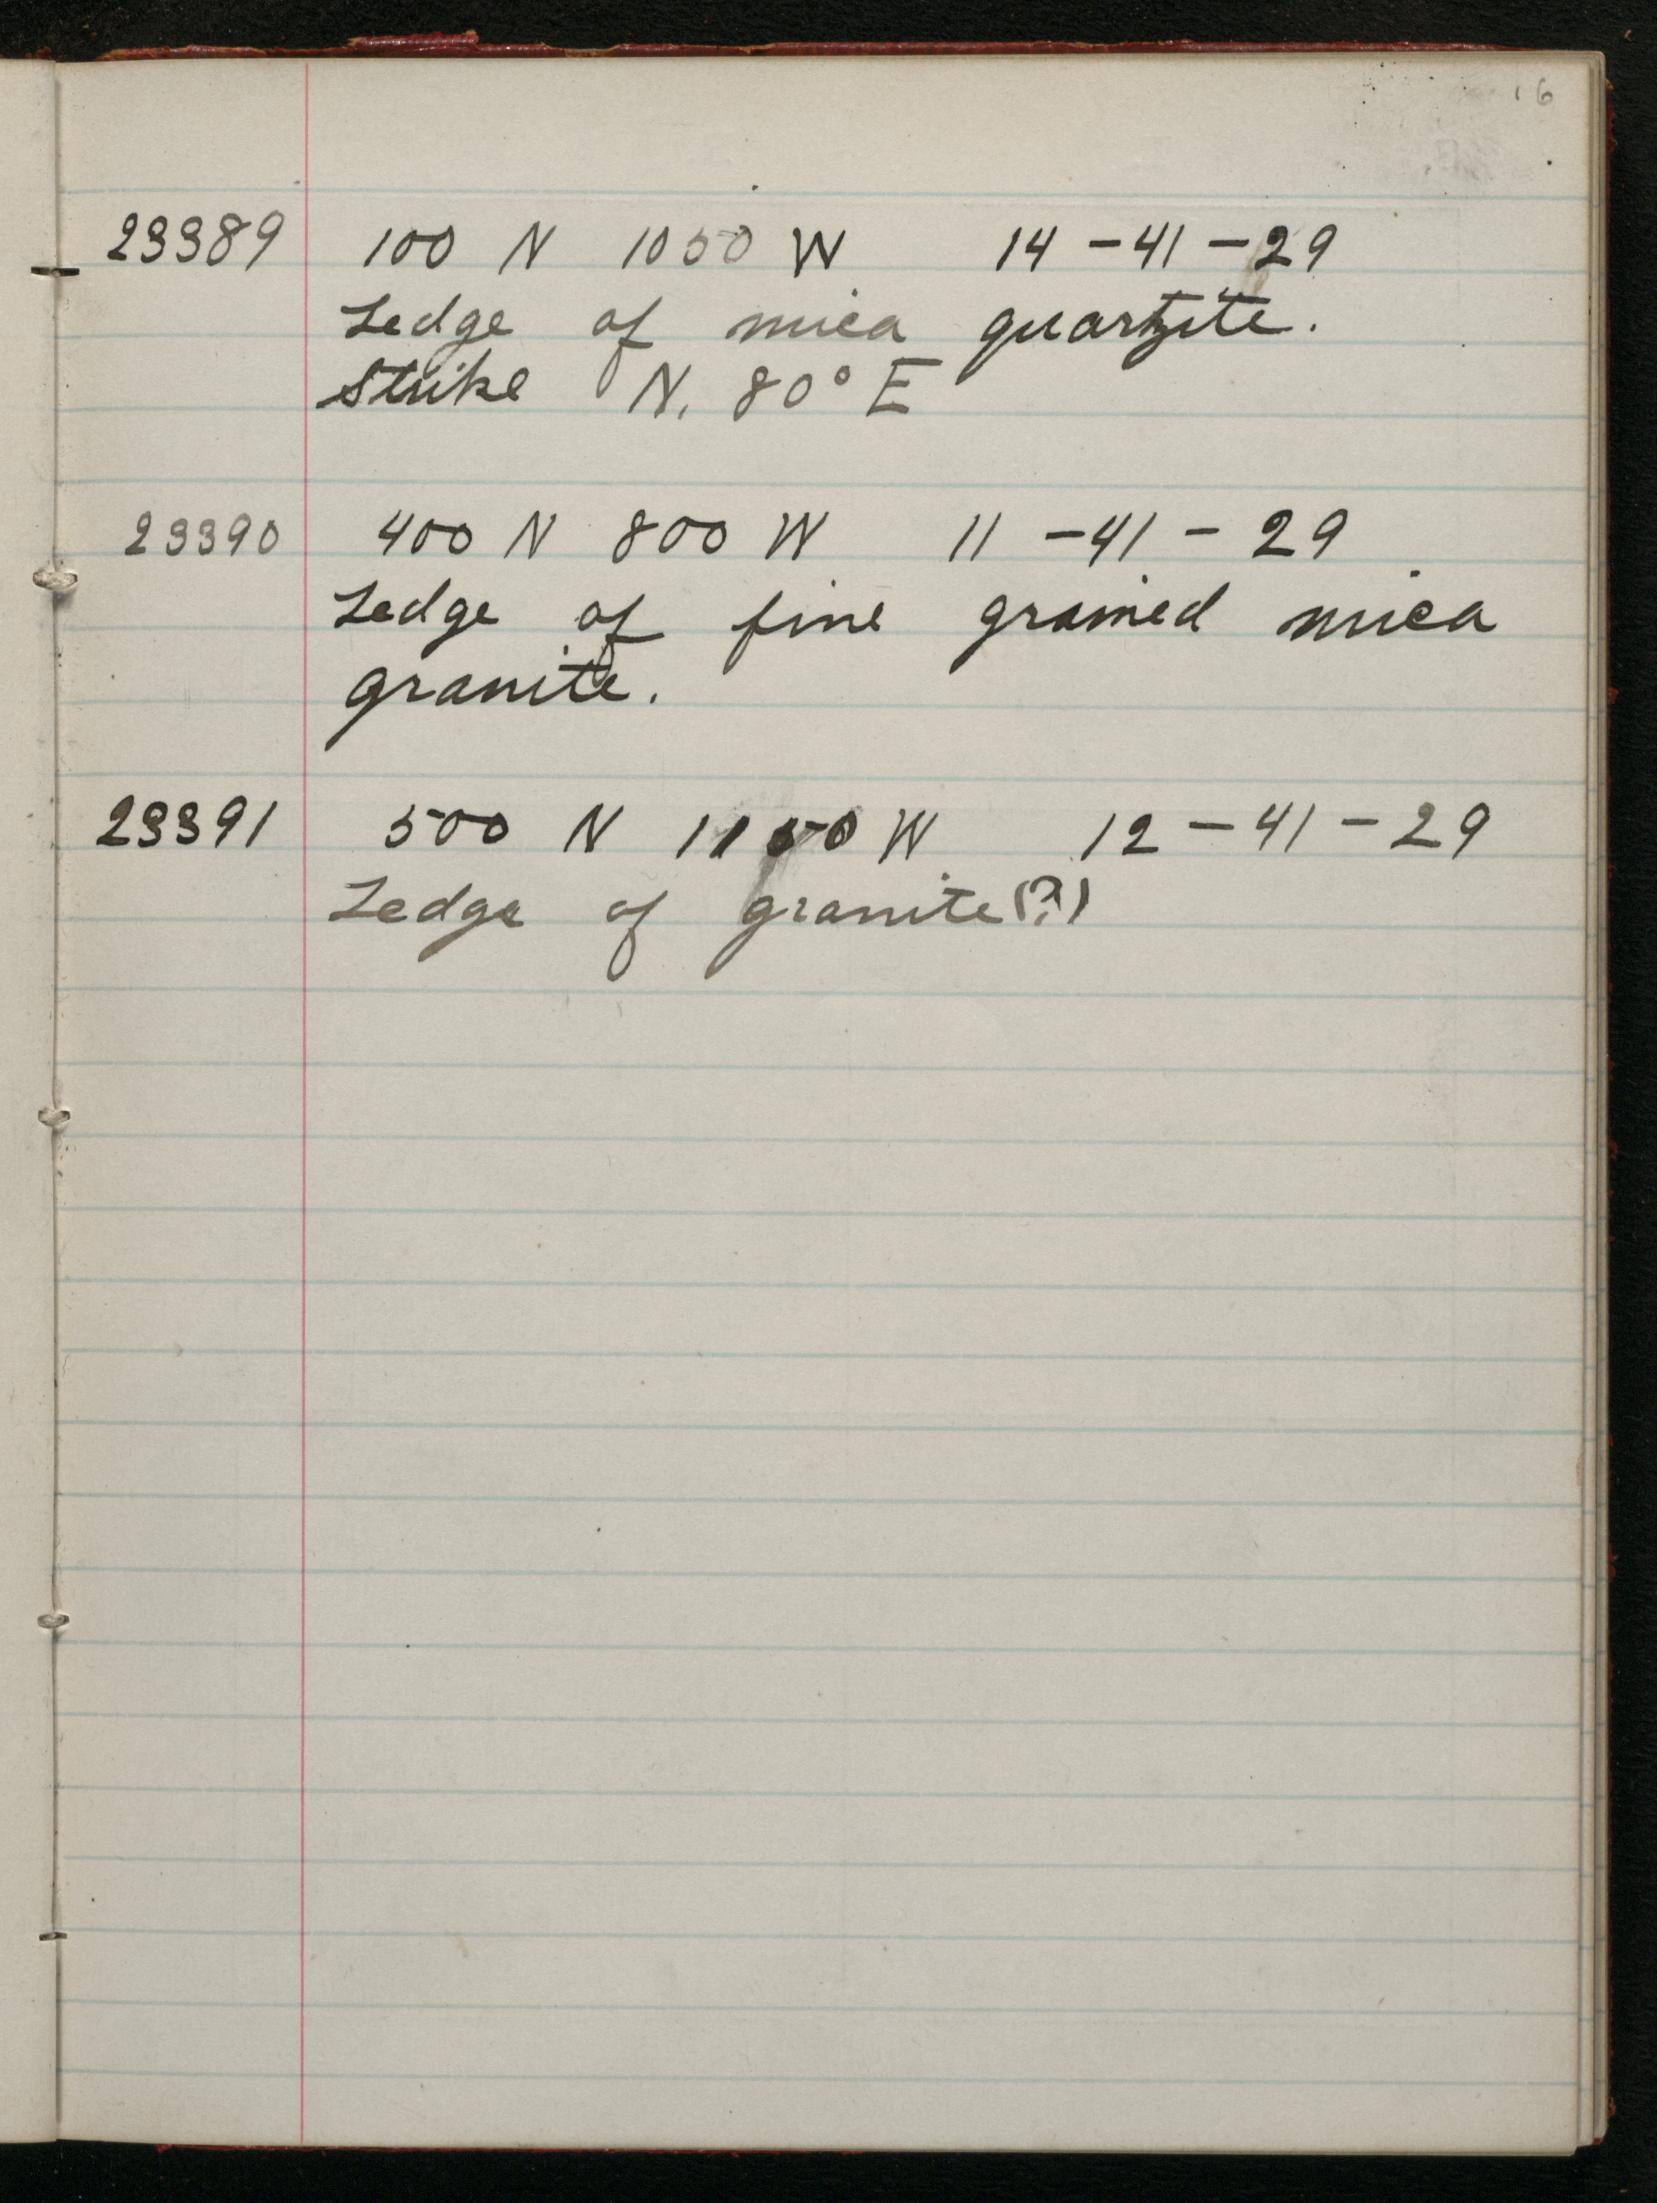 16
23389 100 N 1050 W 14 - 41 - 29
Ledge of mica quartzite.
Strike N. 80° E
23390 400 N 800 W 11 - 41 - 29
Ledge of fine grained mica
granite.
23391 500 N 1150 W 12 - 41 - 29
Ledge of granite (?)